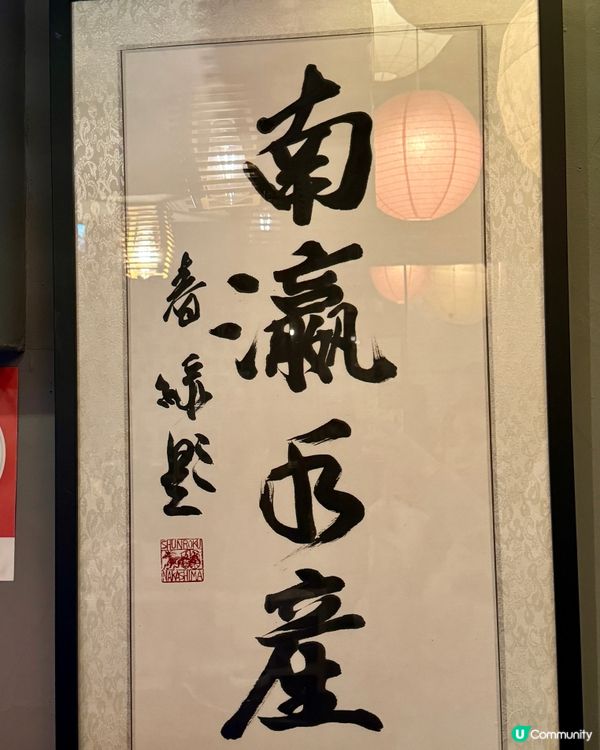 南瀛水産
春緑題
SHUNROKU
NAKASHIMA
U Community